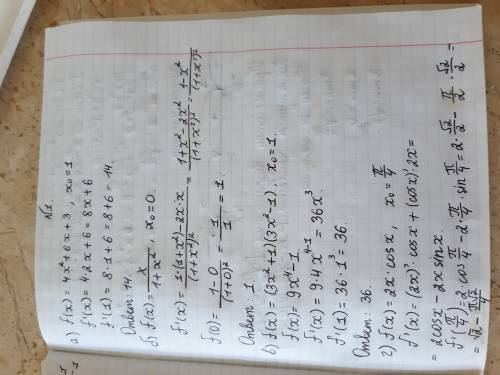 N1.
а) f(x) = 4x²+6x+3, x₀=1
f'(x) = 4·2x+6 = 8x+6
f'(1) = 8·1+6 = 8+6 = 14.
Ответ: 14.
б) f(x) = x/(1+x²), x₀=0.
f'(x) = (1·(1+x²)-2x·x)/(1+x²)² = (1+x²-2x²)/(1+x²)² = (1-x²)/(1+x²)²
f(0) = (1-0)/(1+0)² = 1/1 = 1.
Ответ: 1.
в) f(x) = (3x²+1)(3x²-1), x₀=1.
f(x) = 9x⁴-1.
f'(x) = 9·4x⁴⁻¹ = 36x³
f'(1) = 36·1³ = 36.
Ответ: 36.
г) f(x) = 2x·cosx, x₀=π/4
f'(x) = (2x)'·cosx + (cosx)'·2x =
= 2cosx - 2x sinx.
f'(π/4) = 2cosπ/4 - 2·π/4·sinπ/4 = 2·√2/2 - π/2·√2/2 =
= √2 - π√2/4